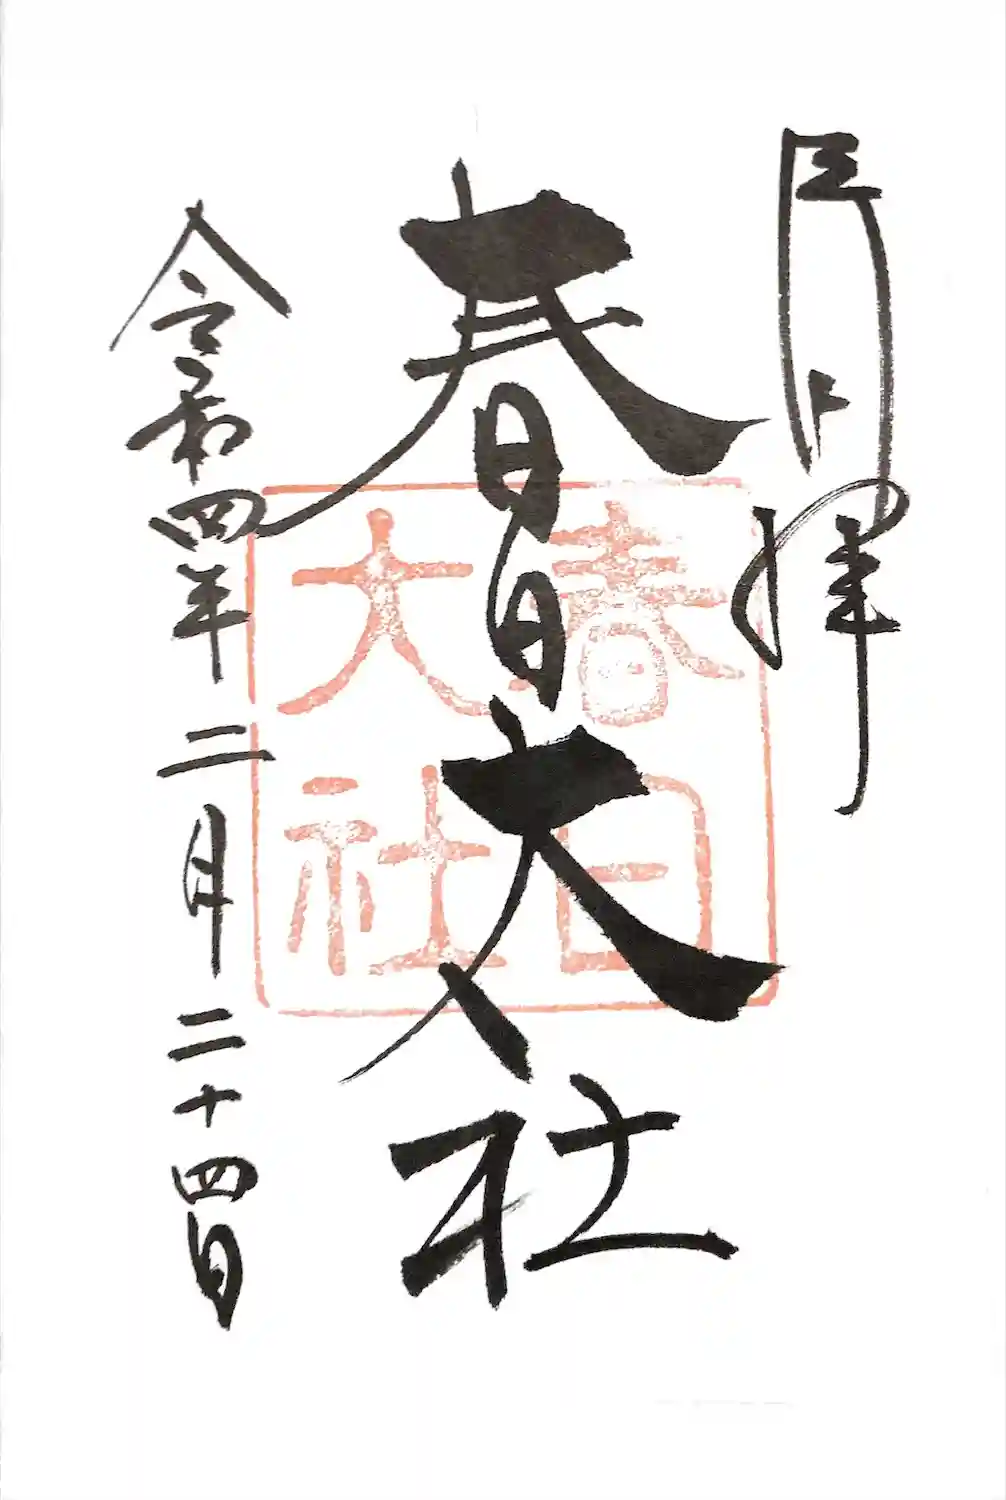 奉拝
春日大社
令和四年二月二十四日
春日
大社